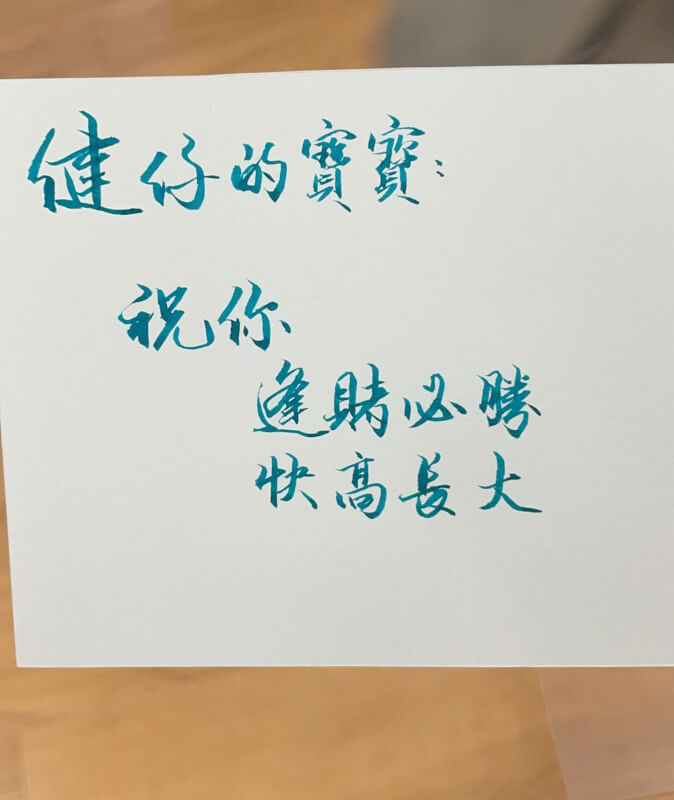 健仔的寶寶：
祝你
逢賭必勝
快高長大